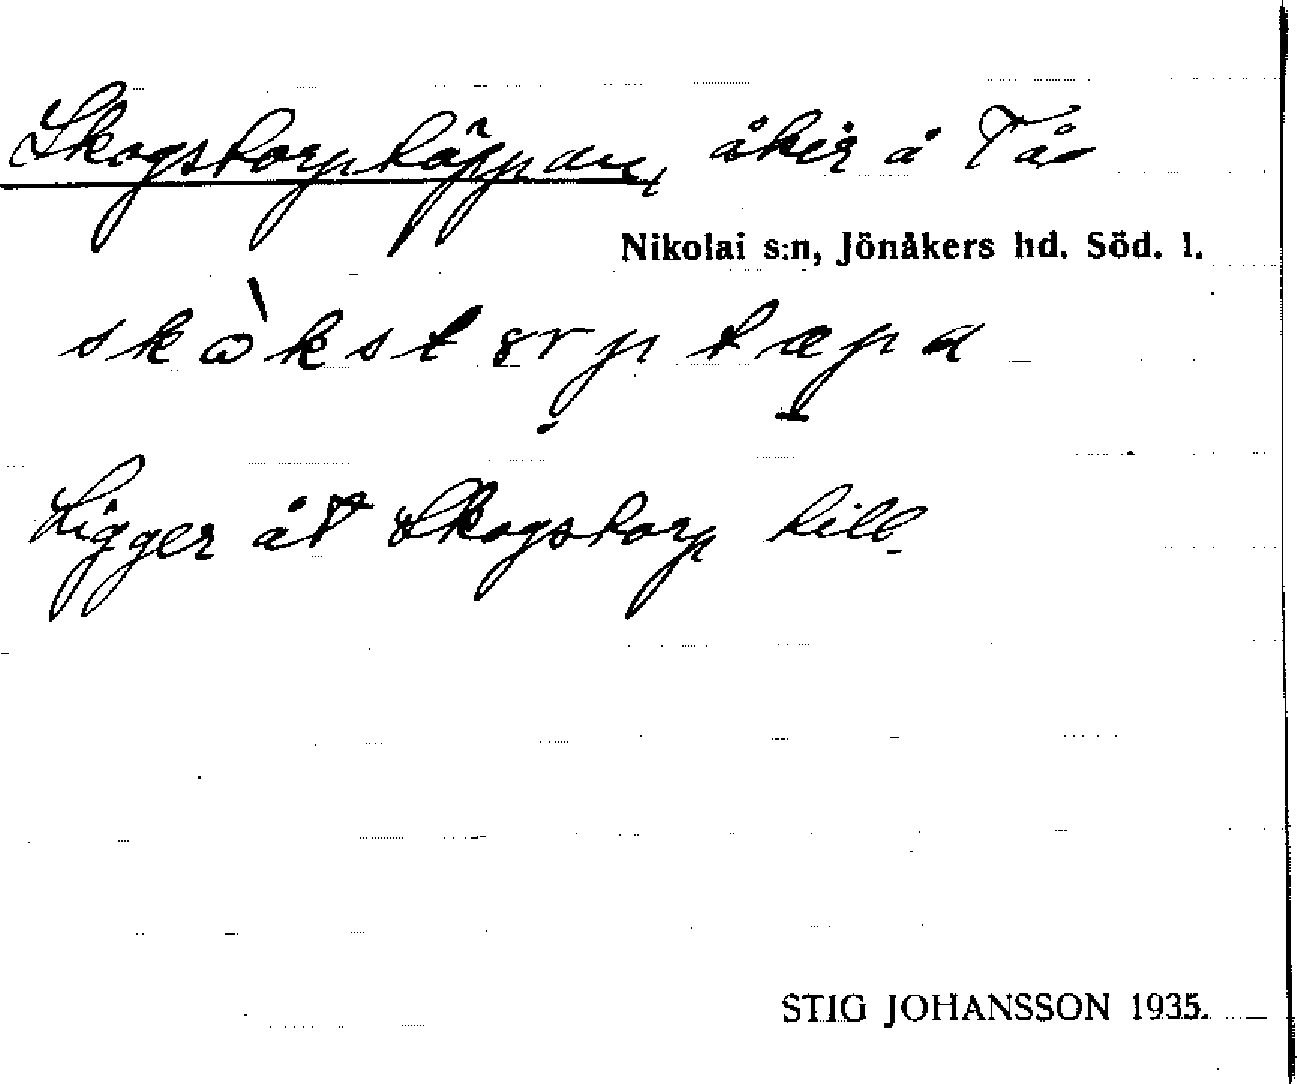 Skogstorptäppan, åker å Tå
Nikolai s:n, Jönåkers hd. Söd. l.
skὼkstɤrp tæpa
Ligger åt Skogstorp till.
STIG JOHANSSON 1935.